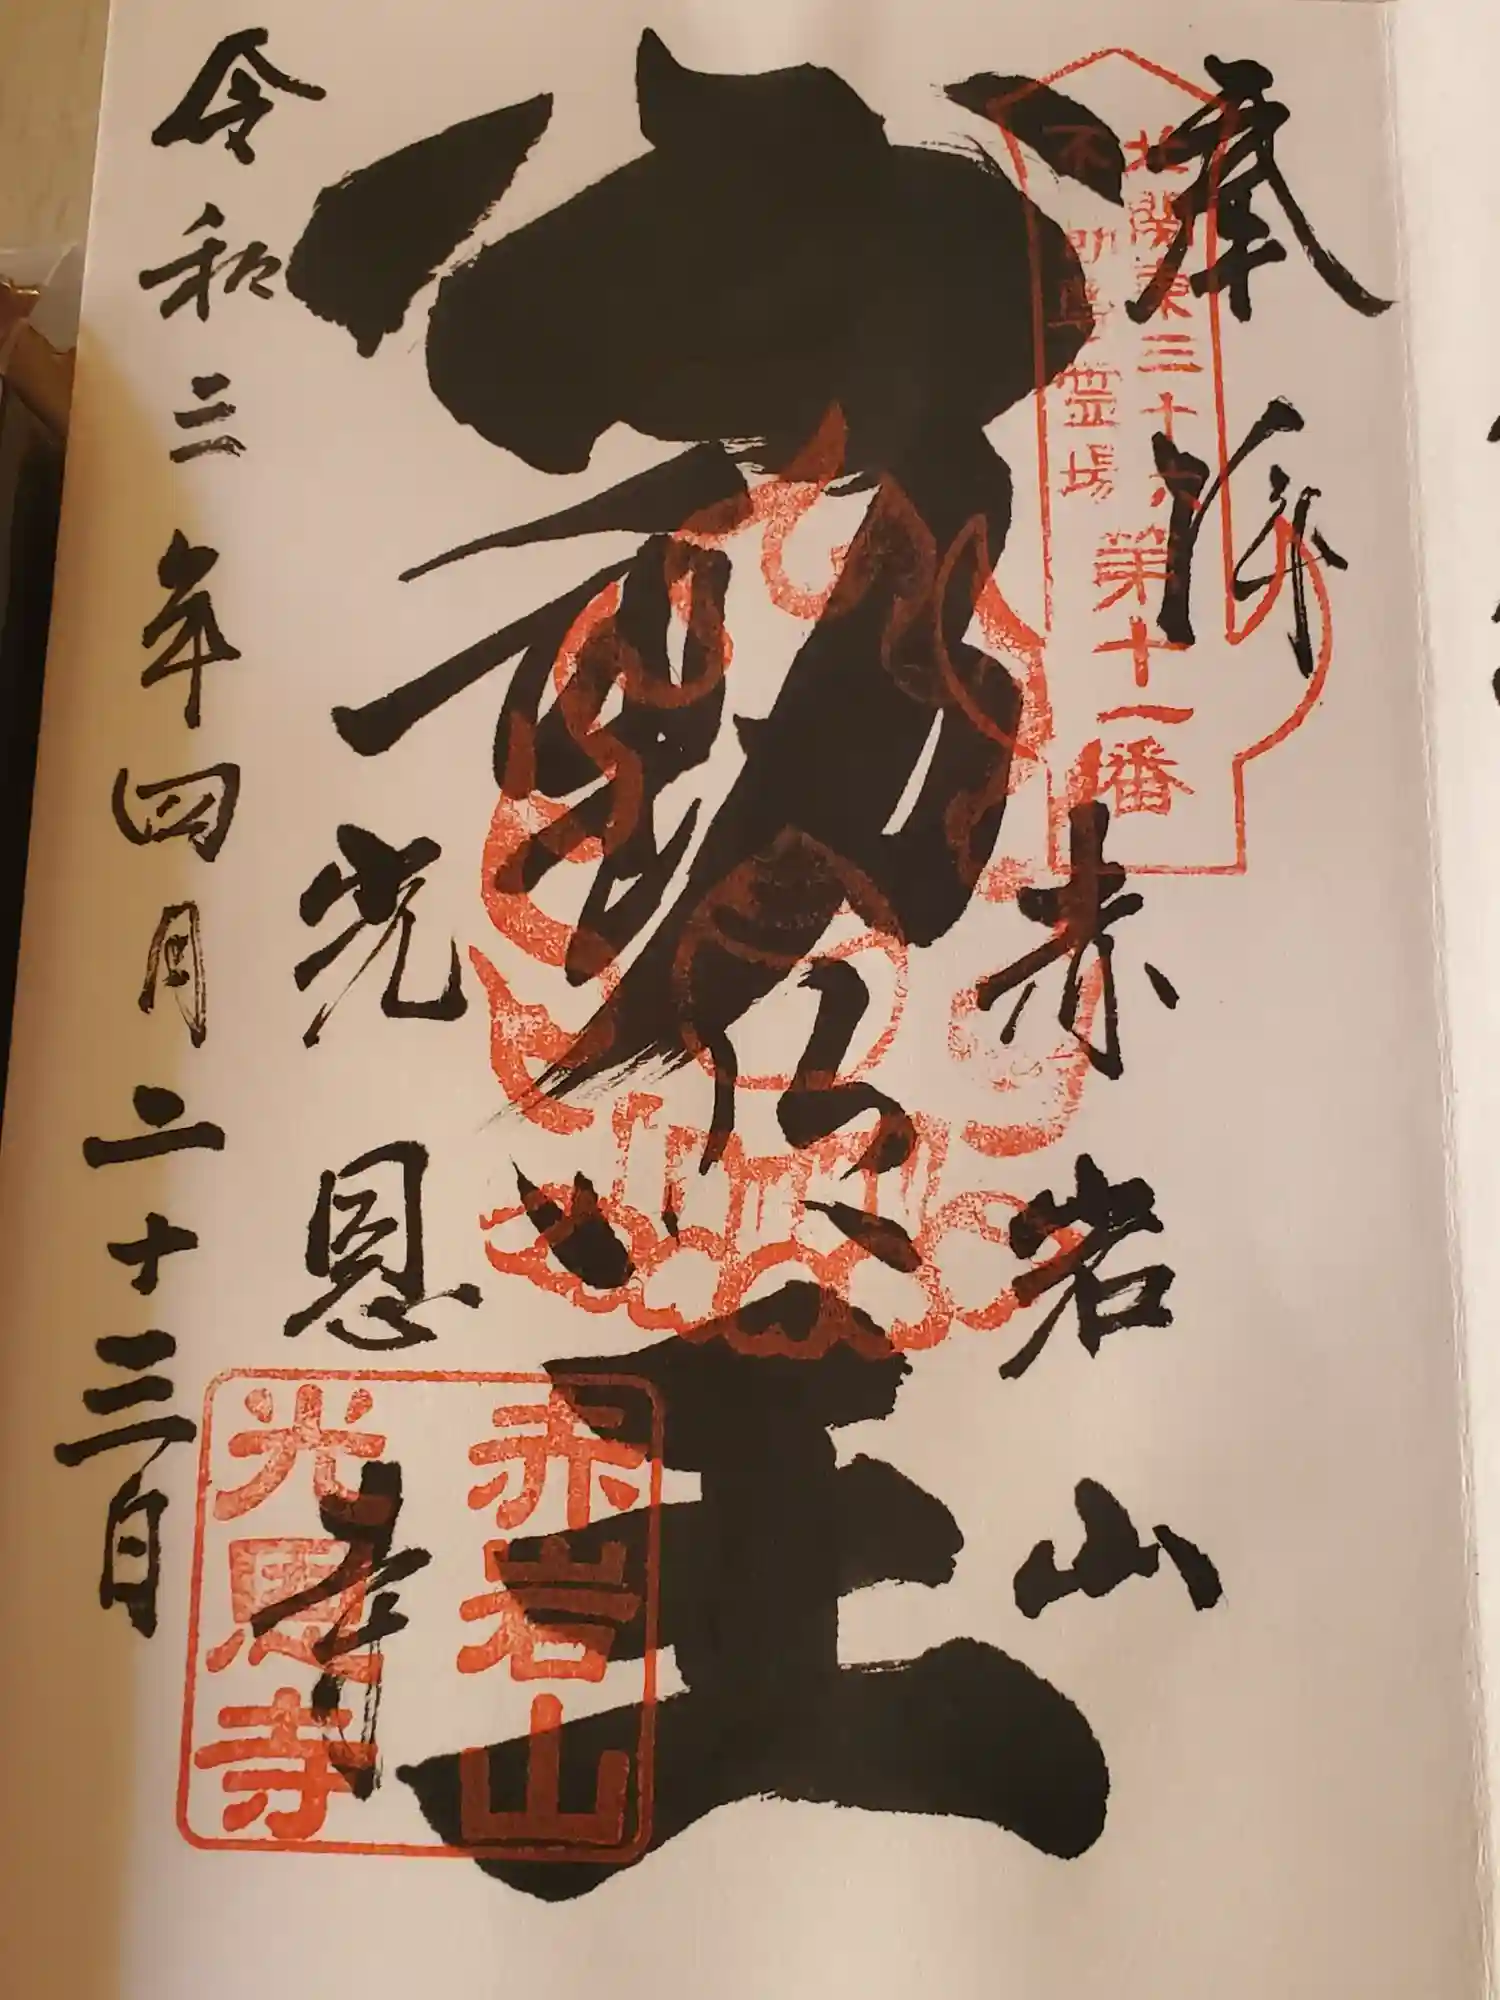 奉拝
北関東三十六
不動尊霊場
第十一番
赤岩山
不動明王
光恩寺
赤岩山
光恩寺
令和三年四月二十三日